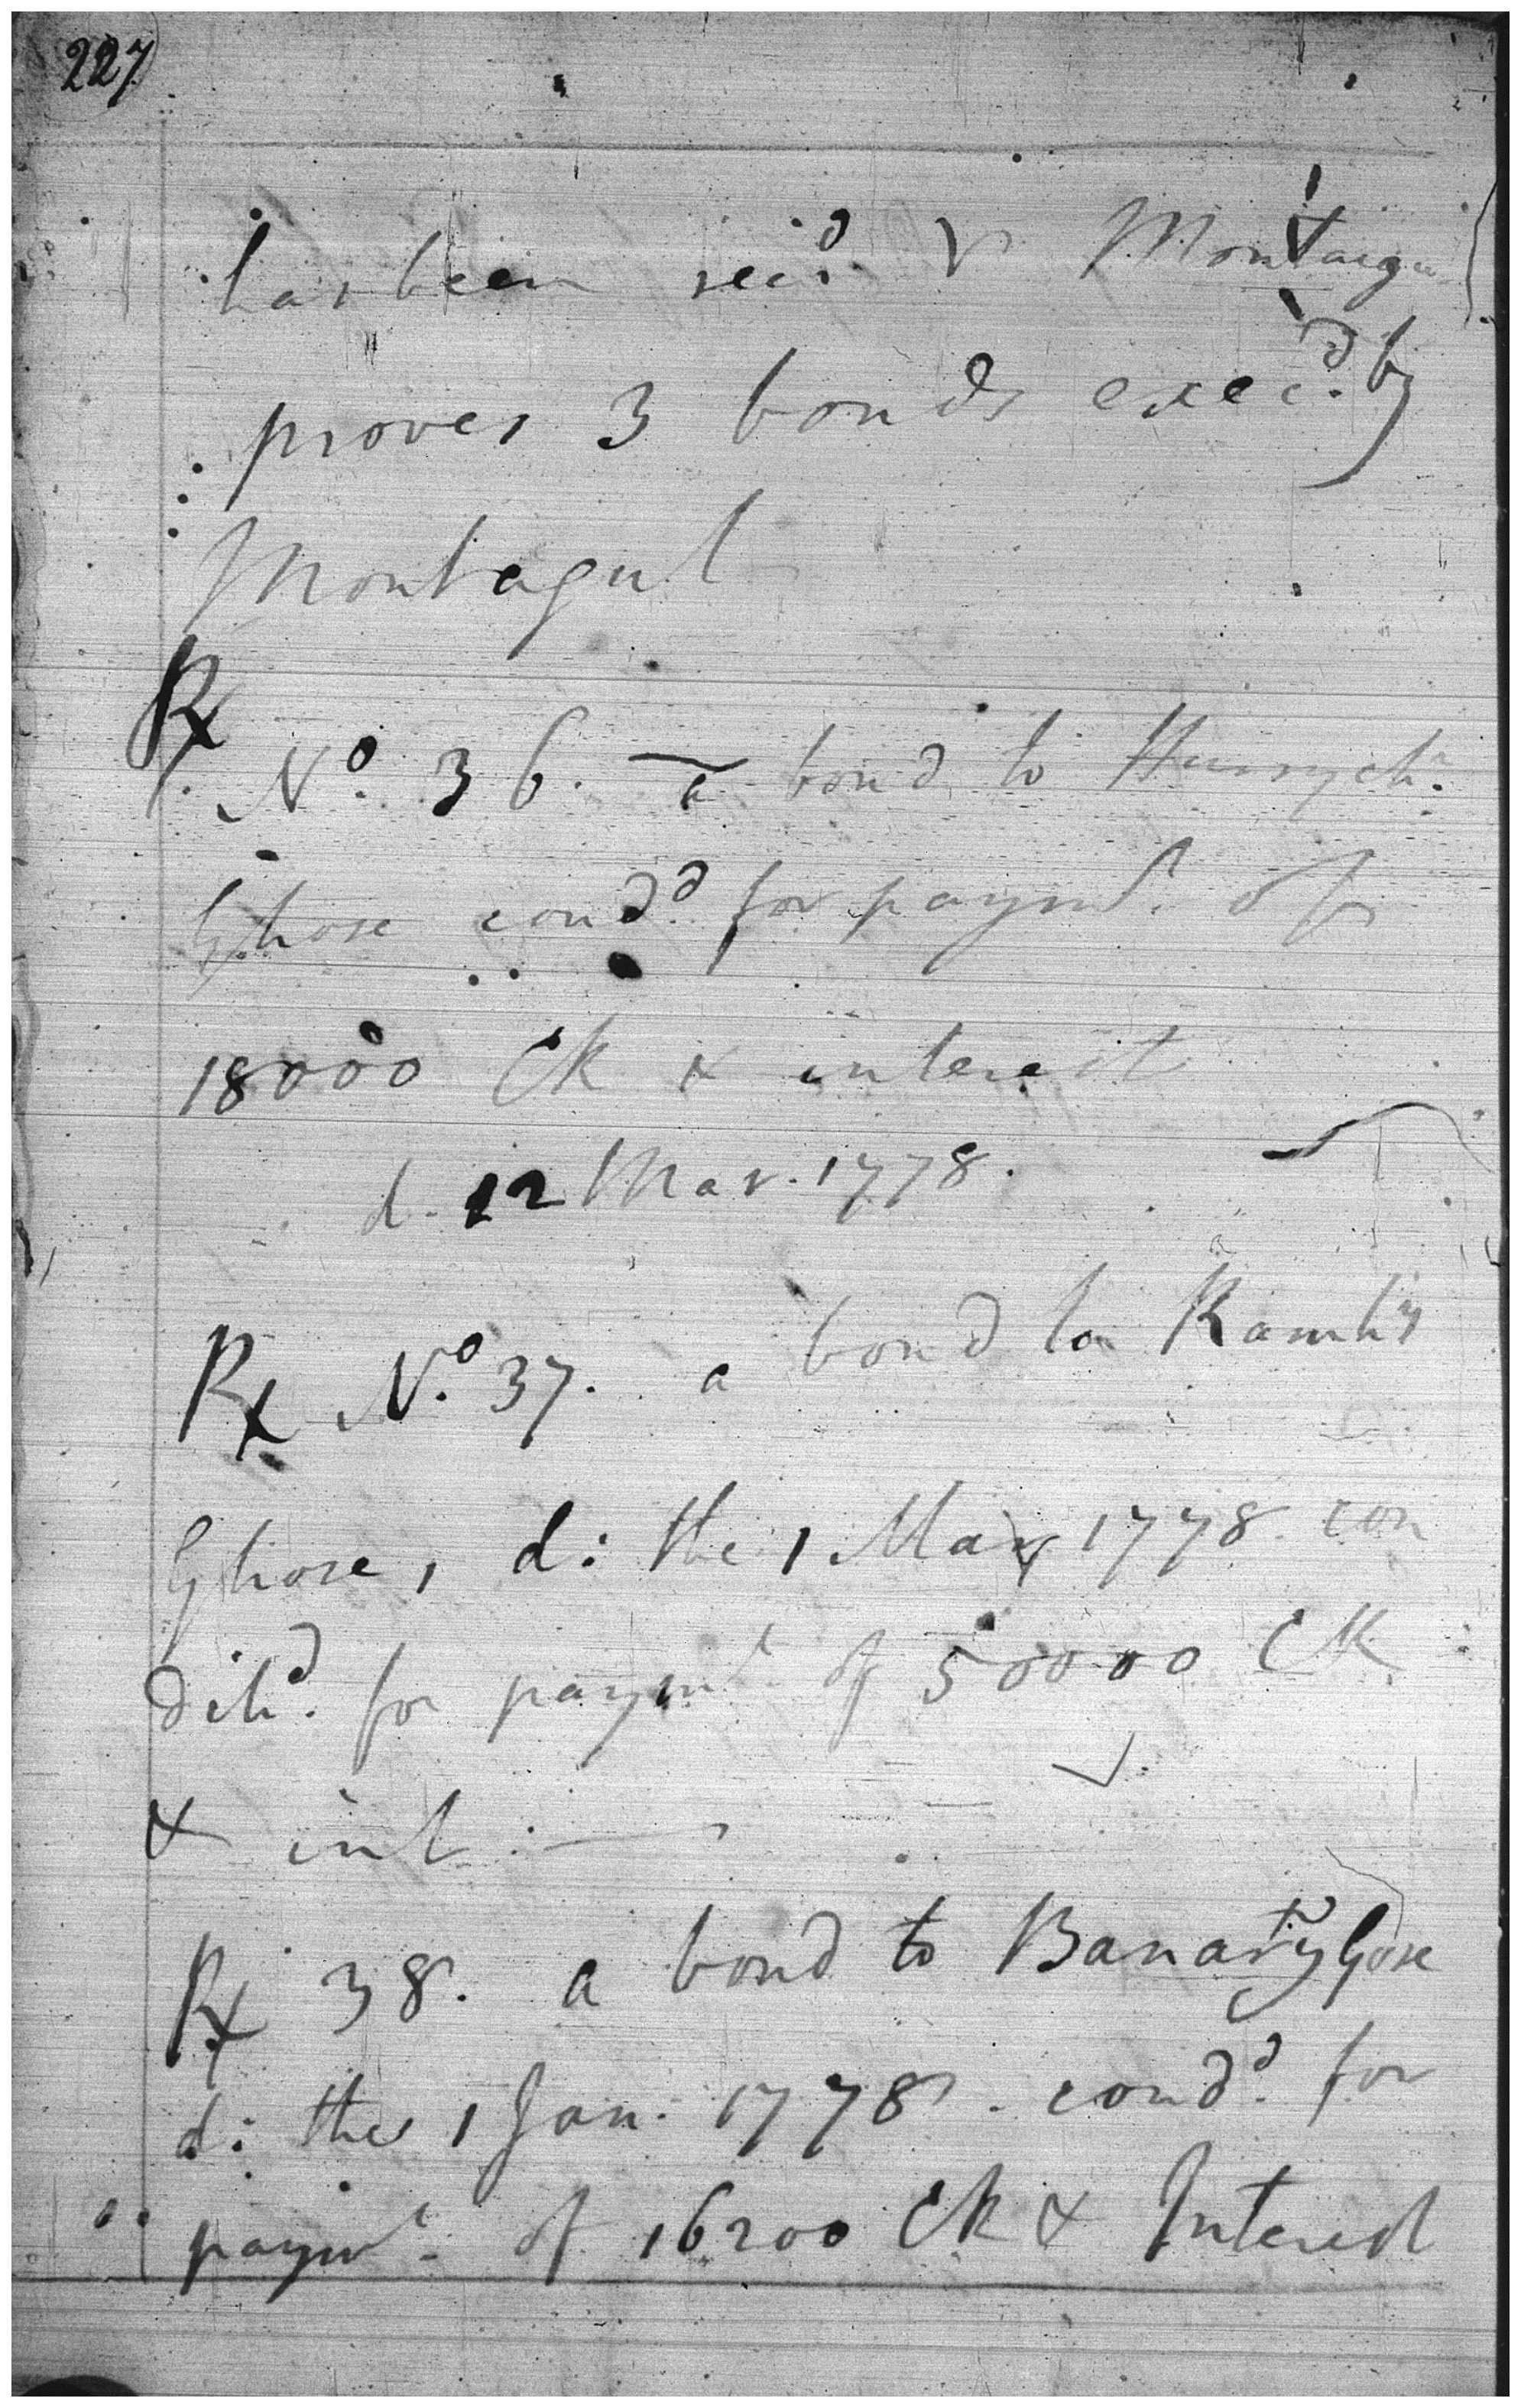 227
has been rec.d v Montagu
proves 3 bonds exec.d by
Montagu
Rx
No. 36. a bond to Hurrych.
Ghose cond.d for paym.t of
18000 CR & interest
d. 12 Mar. 1778.
Rx No. 37. a bond to
Ghose, d: the 1 Mar 1778. con
dit.d for paym.t of 50000 CR
& int.
Rx 38. a bond to Gose
d: the 1 Jan. 1778. cond.d for
paym.t of 16200 CR & Interest